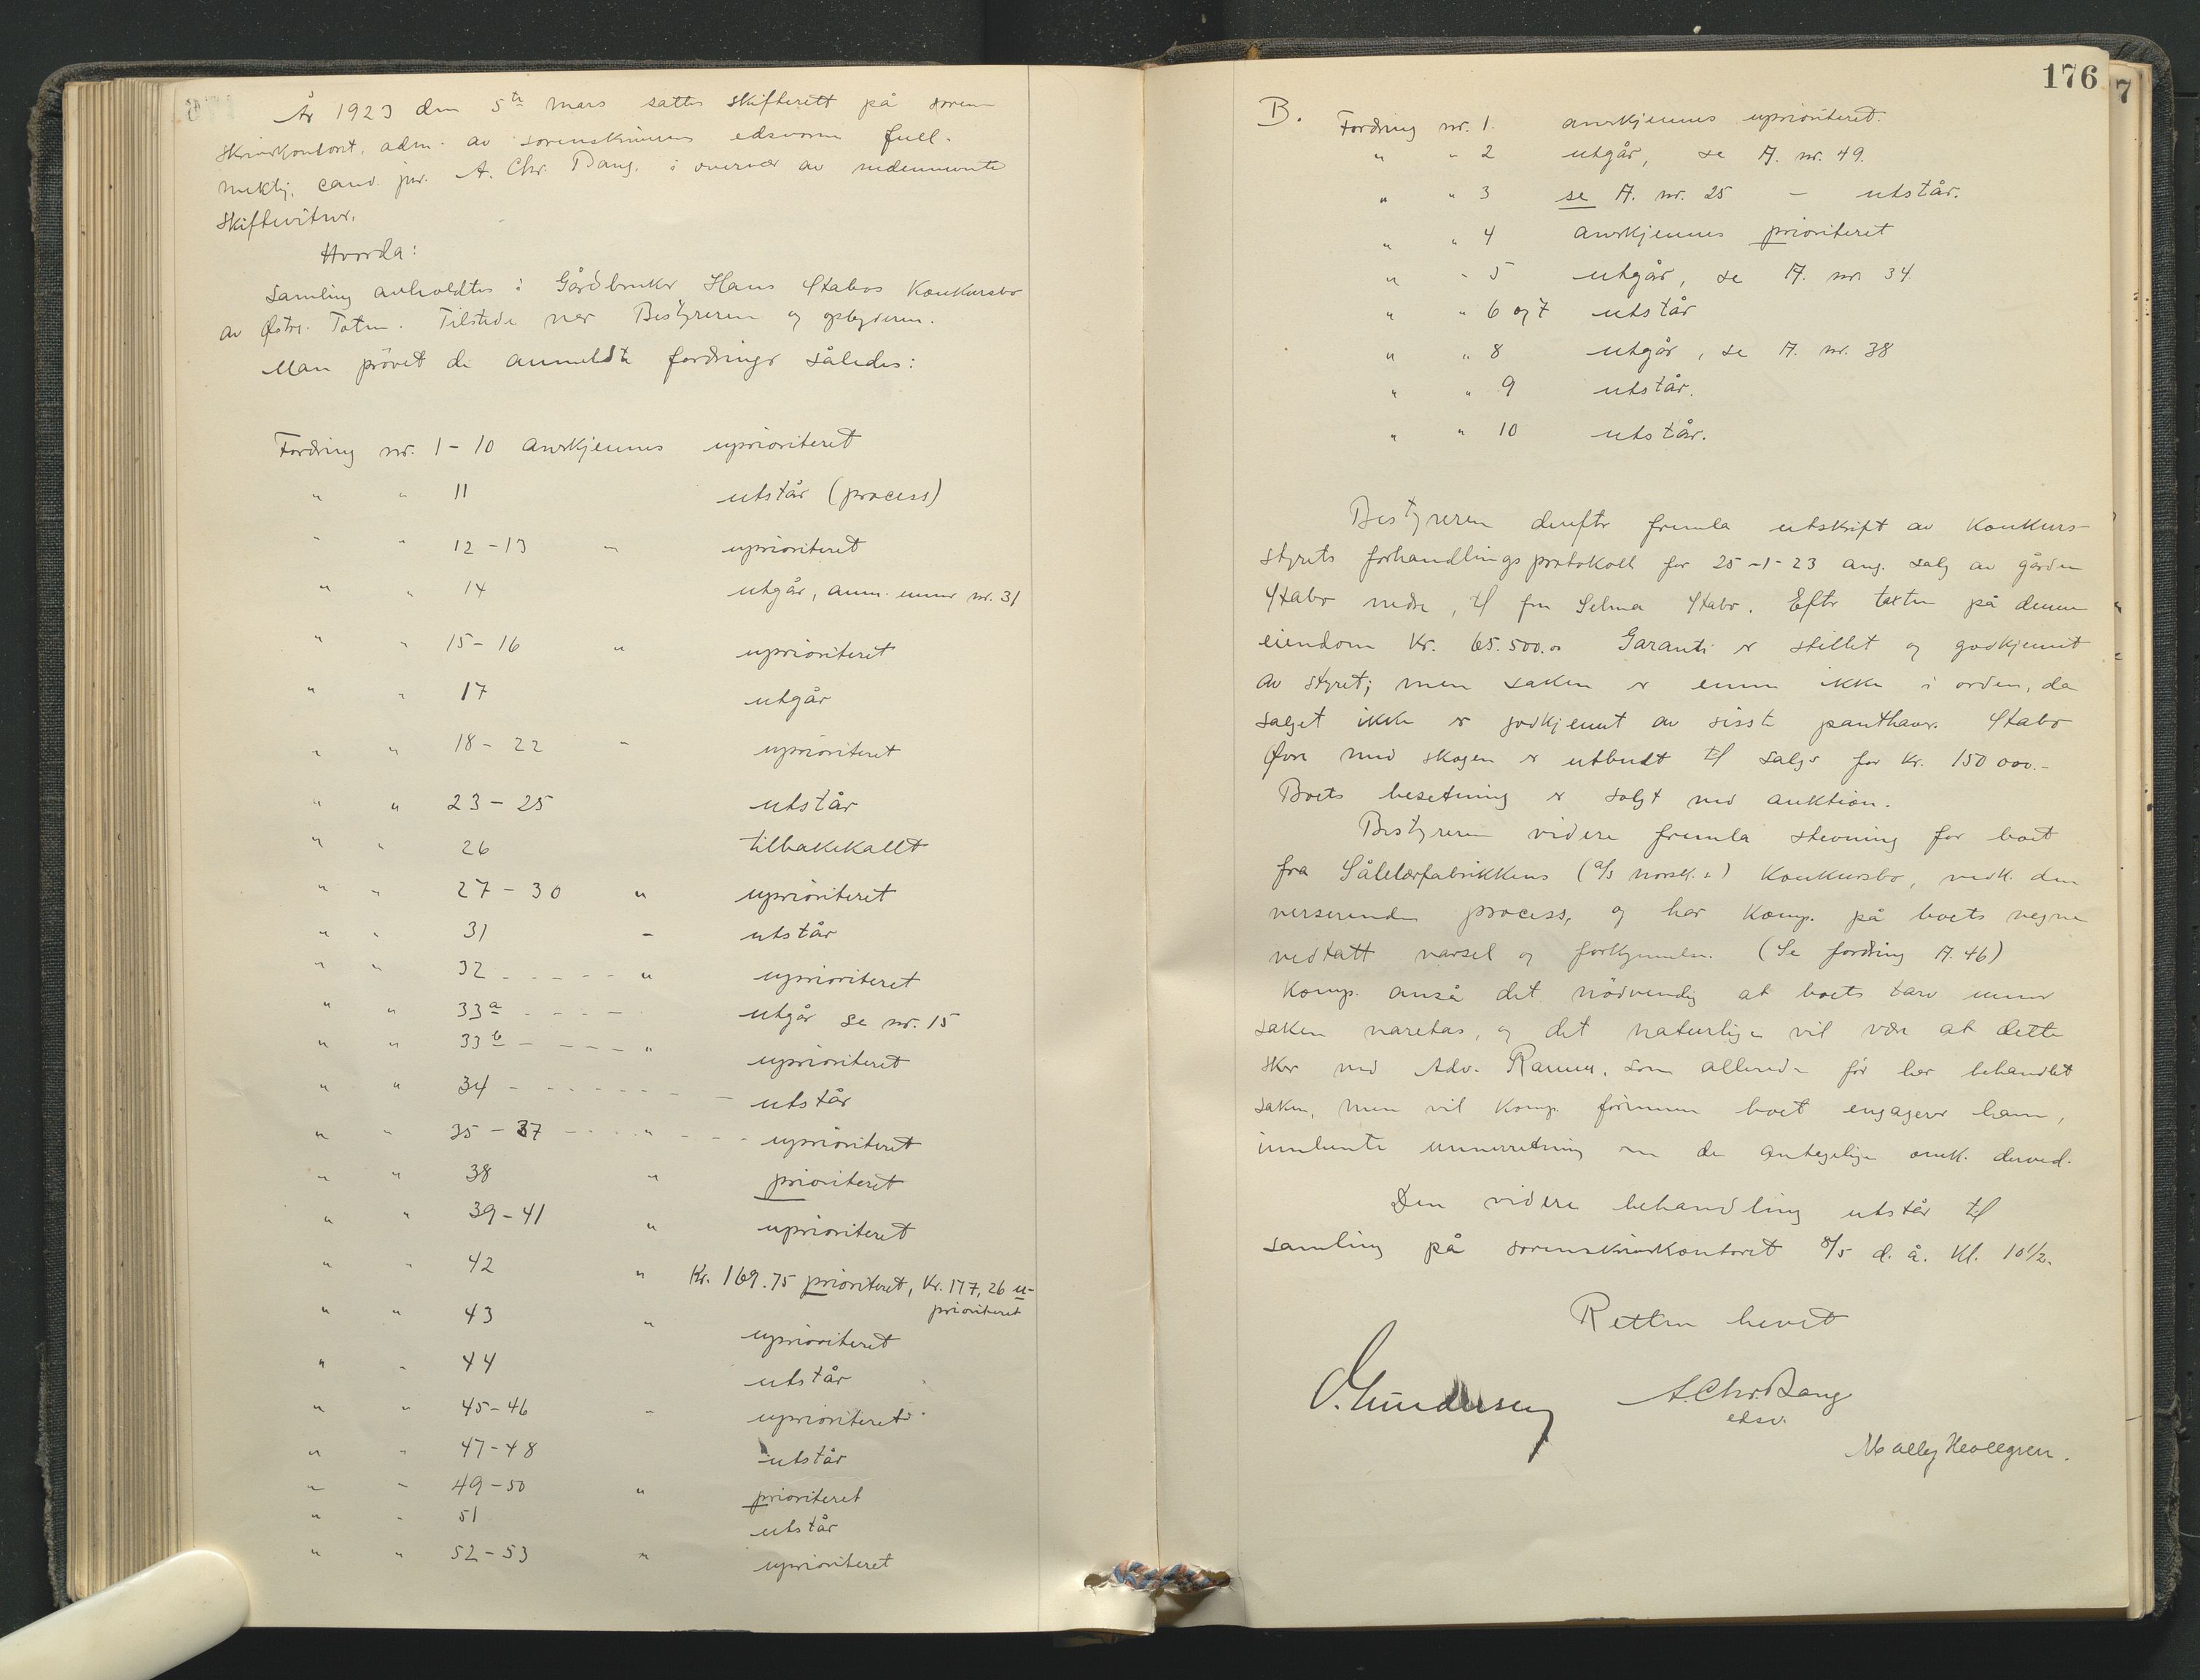 År 1923 den 5te mars sattes skifterett på soren-
skriverkontoret, adm. av sorenskriverens edsvorne full-
mektig, cand. jur. A. Chr. Bang, i overvær av nedennevnte
skiftevitner.
Hvorda:
Samling avholdtes i Gårdbruker Hans Stabos Konkursbo
av Østre Toten. Tilstede var Bestyreren og opbyderen.
Man prøvet de anmeldte fordringer således:
Fordring nr. 1-10 anerkjennes uprioritert
" " 11 utstår (process)
" " 12-13 " uprioriteret
" " 14 utgår, anm. unner nr. 31
" " 15-16 " uprioriteret
" " 17 utgår
" " 18-22 " uprioriteret
" " 23-25 utstår
" " 26 tilbakekallt
" " 27-30 " uprioriteret
" " 31 - utstår
" " 32 - - - - - " uprioriteret
" " 33a - - - - utgår se nr. 15
" " 33b - - - - " uprioriteret
" " 34 - - - - - - - - utstår
" " 35-37 - - - " - - - uprioriteret
" " 38 " prioriteret
" " 39-41 " uprioriteret
" " 42 " Kr. 169.75 prioriteret, Kr. 177,26 u-
prioriteret
" " 43 " uprioriteret
" " 44 utstår
" " 45-46 " uprioriteret
" " 47-48 utstår
" " 49-50 " prioriteret
" " 51 utstår
" " 52-53 " uprioriteret
176
7
B. Fordring nr. 1. anerkjennes uprioriteret.
" " 2 utgår, se A. nr. 49.
" " 3 se A. nr. 25 - utstår.
" " 4 anerkjennes prioriteret
" " 5 utgår, se A. nr. 34
" " 6 og 7 utstår
" " 8 utgår, se A. nr. 38
" " 9 utstår.
" " 10 utstår.
Bestyreren derefter fremla utskrift av Konkurs-
styrets forhandlingsprotokoll for 25-1-23 ang. salg av gården
Stabo nedre, til fru Selma Stabo. Efter taxten på denne
eiendom Kr. 65.500.00 Garanti er stillet og godkjennt
av styret; men saken er ennu ikke i orden, da
salget ikke er godkjennt av sisste panthaver. Stabo
Øvre med skogen er utbudt til salgs for Kr. 150 000.-
Boets besetning er solgt ved auktion.
Bestyreren videre fremla stevning for boet
fra Sålelærfabrikkens (a/s norsk.) Konkursbo, vedk. den
verserende process, og har Komp. på boets vegne
vedtatt varsel og forkynnelse. (Se fordring A. 46)
Komp. anså det nödvendig at boets tarv unner
saken varetas, og det naturlige vil være at dette
skjer ved Adv. som allerede før har behandlet
saken, men vil Komp. förinnen boet engagerer ham,
innhente unnerretning om de antagelige omk. derved.
Den videre behandling utstår til
samling på sorenskriverkontoret 8/5 d. å. Kl. 10 1/2.
Retten hevet
O. Gundersen A. Chr. Bang
edsv.
Mally